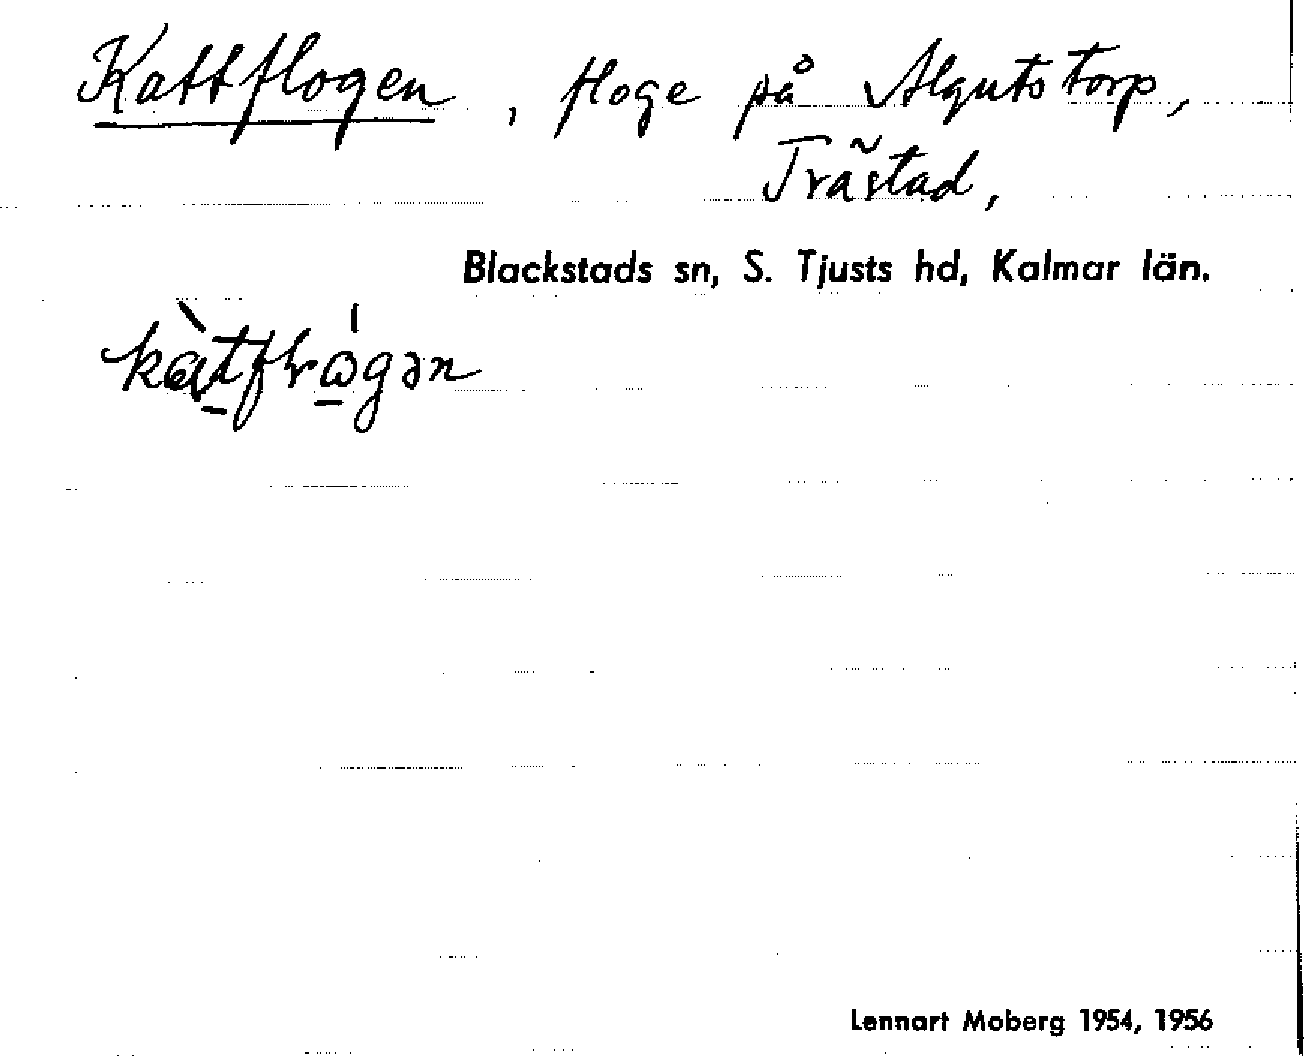 Kattflogen, floge på Algutstorp,
Trästad,
Blackstads sn, S. Tjusts hd, Kalmar län.
Lennart Moberg 1954, 1956